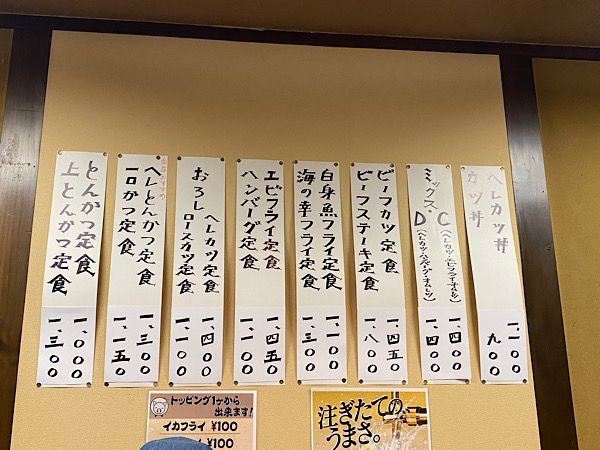 ヘレカツ丼 一、一〇〇
カツ丼 九〇〇
ミックス・C(ヘレカツ・エビフライ・オムレツ) 一、四〇〇
D(ヘレカツ・ハンバーグ・オムレツ) 一、四〇〇
ビーフカツ定食 一、四五〇
ビーフステーキ定食 一、八〇〇
白身魚フライ定食 一、一〇〇
海の幸フライ定食 一、三〇〇
エビフライ定食 一、四五〇
ハンバーグ定食 一、一〇〇
おろし ヘレカツ定食 一、四〇〇
ロースカツ定食 一、一〇〇
ヘレとんかつ定食 一、三〇〇
一口かつ定食 一、一五〇
とんかつ定食 一、〇〇〇
上とんかつ定食 一、三〇〇
トッピング1ヶから
出来ます!
イカフライ ¥100
¥100
注ぎたての、
うまさ。